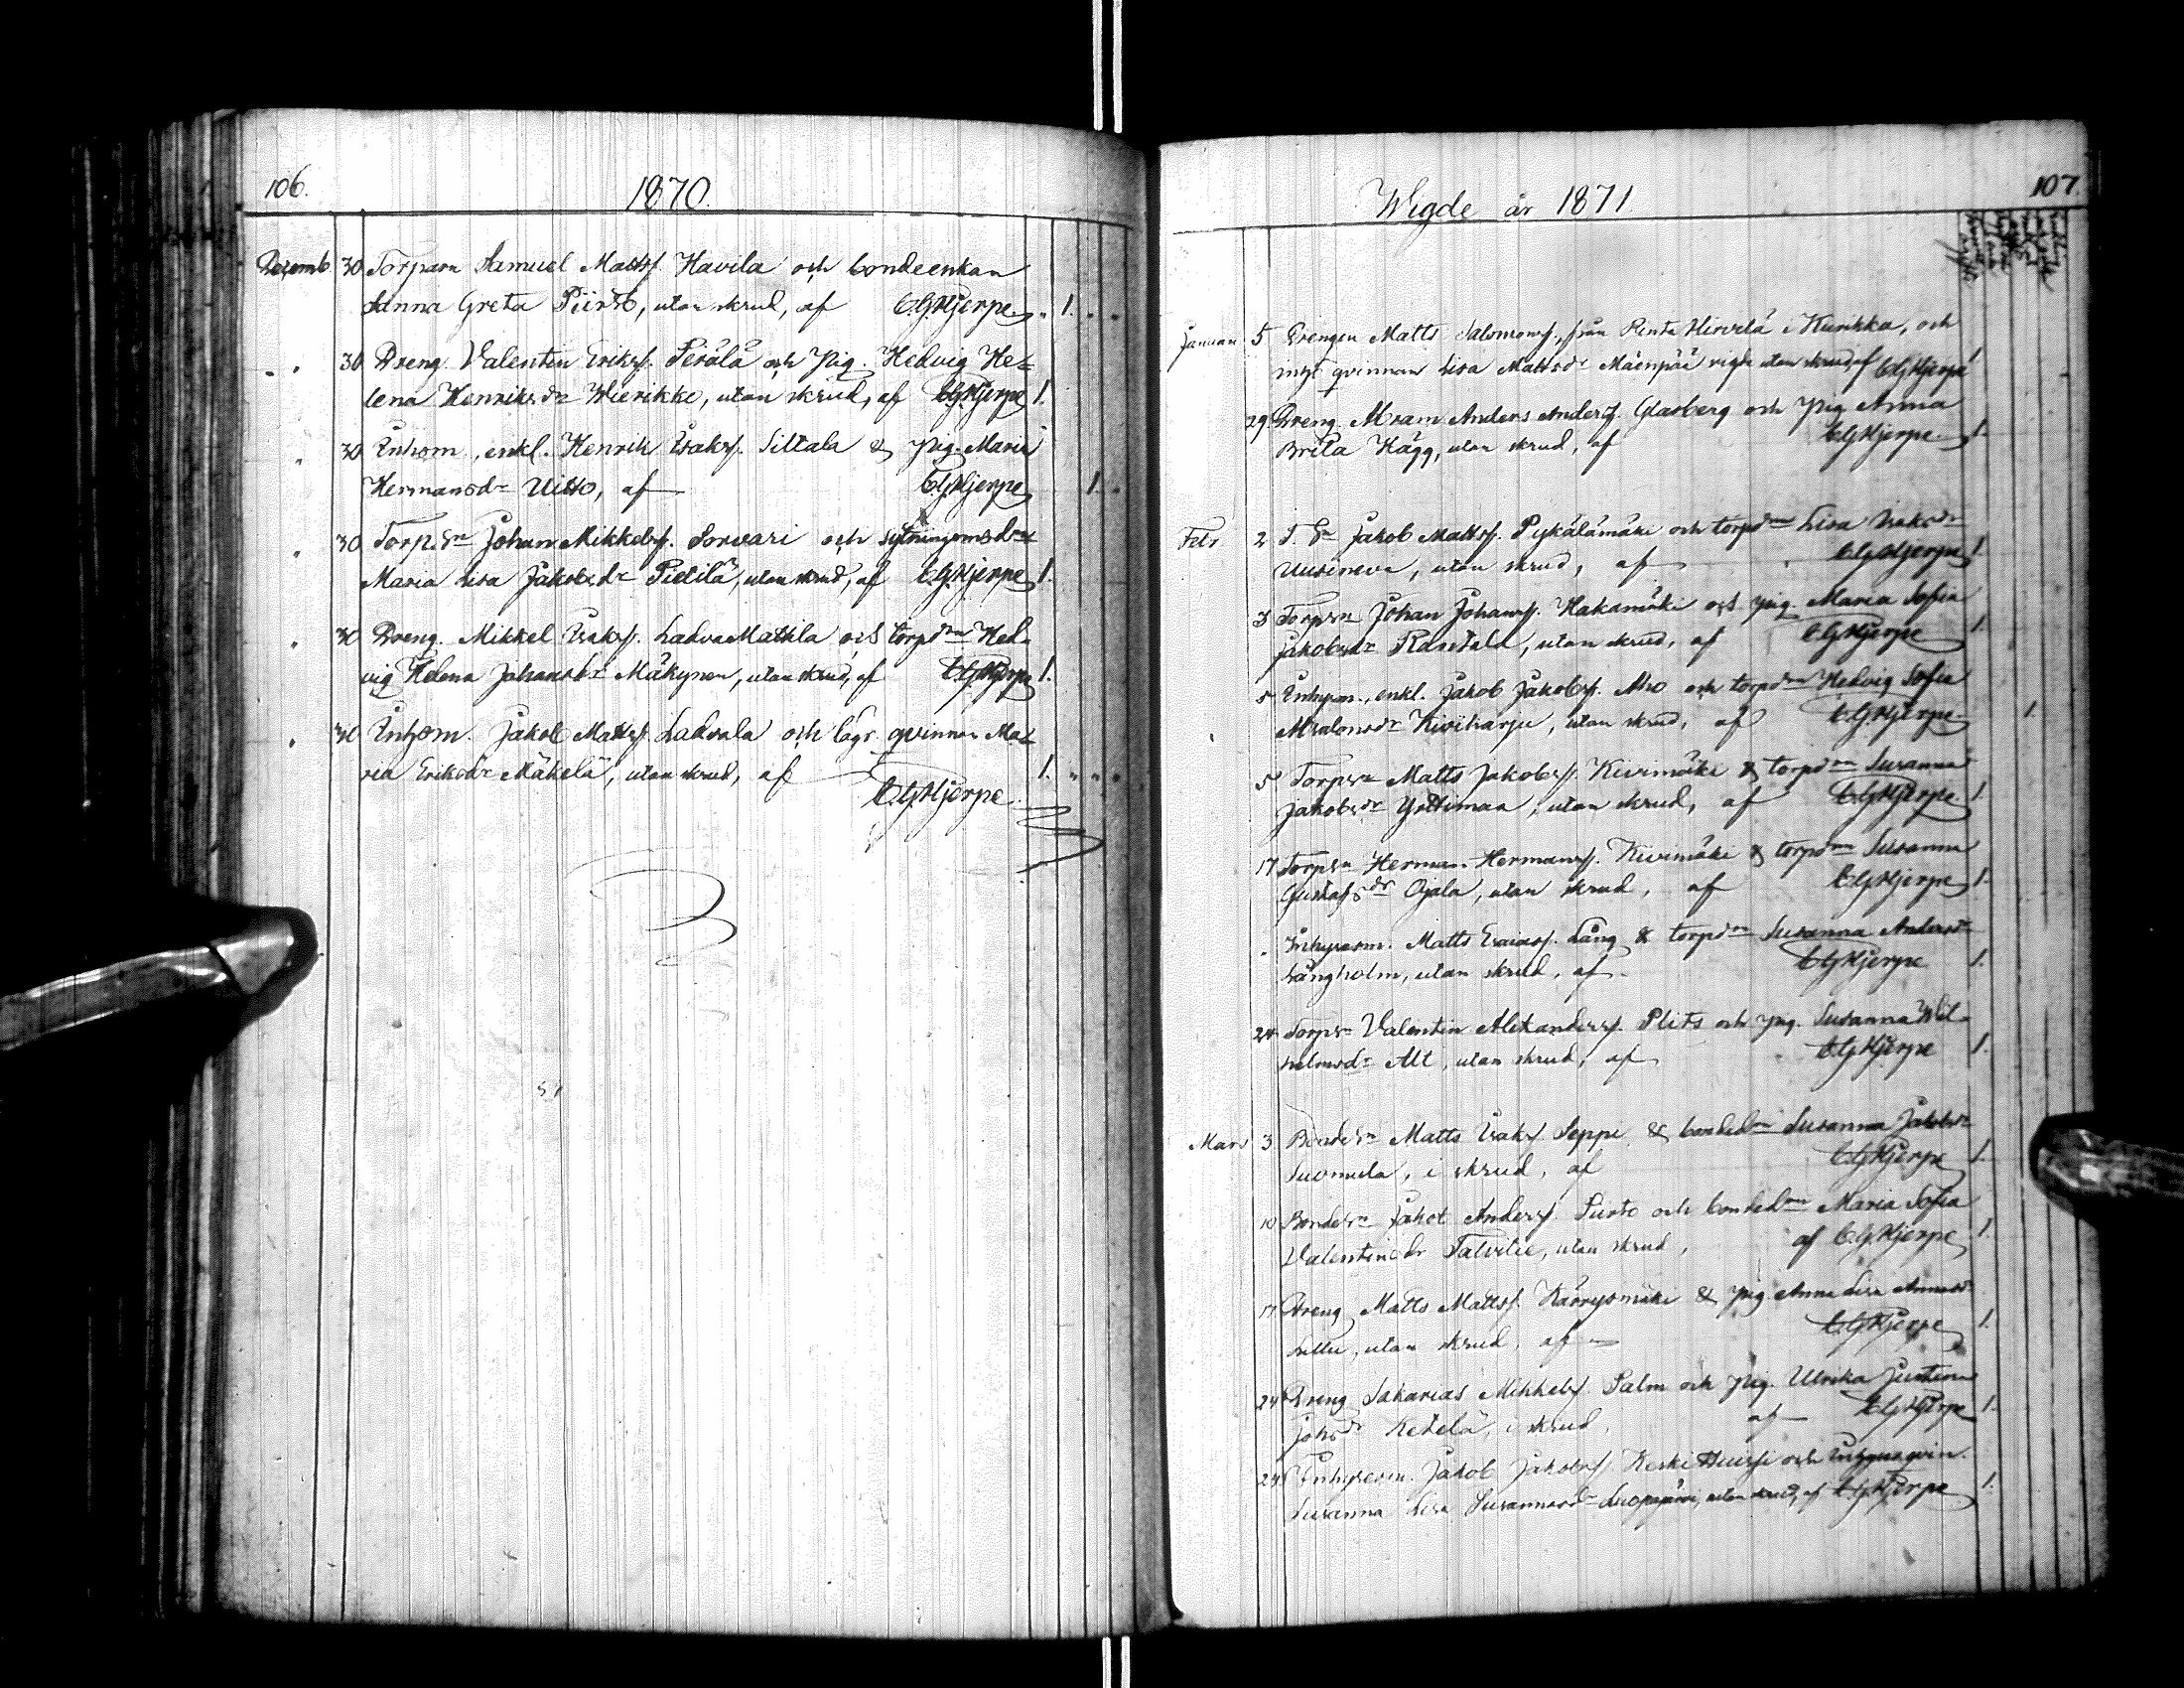 106.
1870.
Decemb. 30 Torparn Samuel Mattsf. Havila och bondeenkan
Sanna Greta Piirto, utan skrud, af CGHjerpe 1.
30 Dreng. Valentin Eriksf. Perälä och pig. Hedvig He-
lena Henriksdr Wierikko, utan skrud, af CGHjerpe 1.
30 Inhom., enkl. Henrik Isaksf. Siltala & pig. Maria
Hermansdr Uitto, af CGHjerpe 1.
30 Torp.sn Johan Mikkelsf. Sorvari och sytningsmsdr
Maria Lisa Jakobsdr Pietilä, utan skrud, af CGHjerpe 1.
30 Dreng. Mikkel Isaksf. LadvaMattila och torpdrn Hed-
vig Helena Johansdr Mäkynen, utan skrud, af CGHjerpe 1.
30 Inhom. Jakob Mattsf. Ladvala och lägr. qvinnan Ma-
ria Eriksdr Mäkelä, utan skrud, af 1.
CGHjerpe.
51
107
Wigde år 1871
Januari 5 Drengen Matts Salomonsf., från Rinta Hirvelä i Kurikka, och
inhs qvinnan Lisa Mattsdr Mäenpää vigde utan skrud, af CGHjerpe 1
29 Dreng. Abram Anders Andersf. Glasberg och pig Anna
Brita Hägg, utan skrud, af CGHjerpe 1.
Febr 2 T. Sn Jakob Mattsf. Pykälämäki och torpdrn Lisa Isaksdr
Uusineva, utan skrud, af CGHjerpe 1.
3 Torpsn Johan Johansf. Hakamäki och pig. Maria Sofia
Jakobsdr Rantala, utan skrud, af CGHjerpe 1.
5 Inhysn., enkl. Jakob Jakobsf. Aho och torpdrn Hedvig Sofia
Absalonsdr Kiviharju, utan skrud, af CGHjerpe 1.
5 Torpsn Matts Jakobsf. Kivimäki & torpdrn Susanna
Jakobsdr Yöttimaa, utan skrud, af CGHjerpe 1.
17 Torpsn Herman Hermansf. Kivimäki & torpdrn Susanna
Gustafsdr Ojala, utan skrud, af CGHjerpe 1.
Inhysesm. Matts Esaiasf. Lång & torpdrn Susanna Andersdr
Långholm, utan skrud, af CGHjerpe 1.
24 Torpsn Valentin Alexandersf. Plits och pig. Susanna Wil-
helmsdr Alt, utan skrud, af CGHjerpe 1.
Mars 3 Bondesn Matts Isaksf. Seppi & bondedrn Susanna Jakobsdr
Luomula, i skrud, af CGHjerpe 1.
10 Bondesn Jakob Andersf. Piirto och bondedrn Maria Sofia
Valentinsdr Talvitie, utan skrud, af CGHjerpe 1.
17 Dreng Matts Mattsf. Kärrysmäki & pig Anna Lisa Annasdr
utan skrud, af CGHjerpe 1.
24 Dreng Sakarias Mikkelsf. Palm och pig. Ulrika Justina
Johsdr Ketelä, i skrud, af CGHjerpe 1.
24 Inhysesm. Jakob Jakobsf. Keski och Inhysesqvin.
Susanna Lisa Susannasdr Luopajärvi, utan skrud, af CGHjerpe 1.